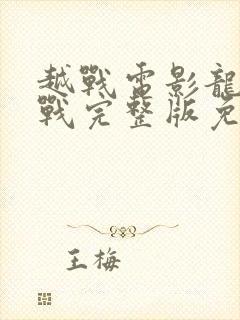 越戰電影龍
戰完整版免
王梅